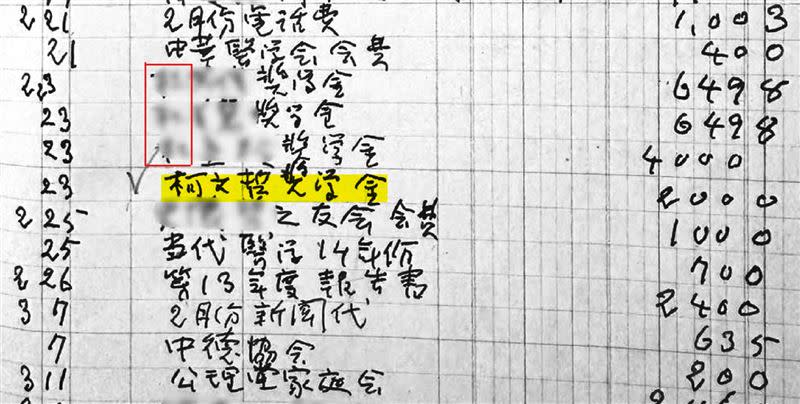 2 21 2月份電話費 1,003
21 中華醫学会会費 400
2 23 奬学金 6498
23 奬学金 6498
23 奬学金 4000
23 柯文哲奬学金 2000
2 25 之友会会費 1000
25 当代醫学14年份 700
2 26 第13年度報告書 2400
3 7 2月份新聞代 635
7 中德協会 200
3 11 公理堂家庭会